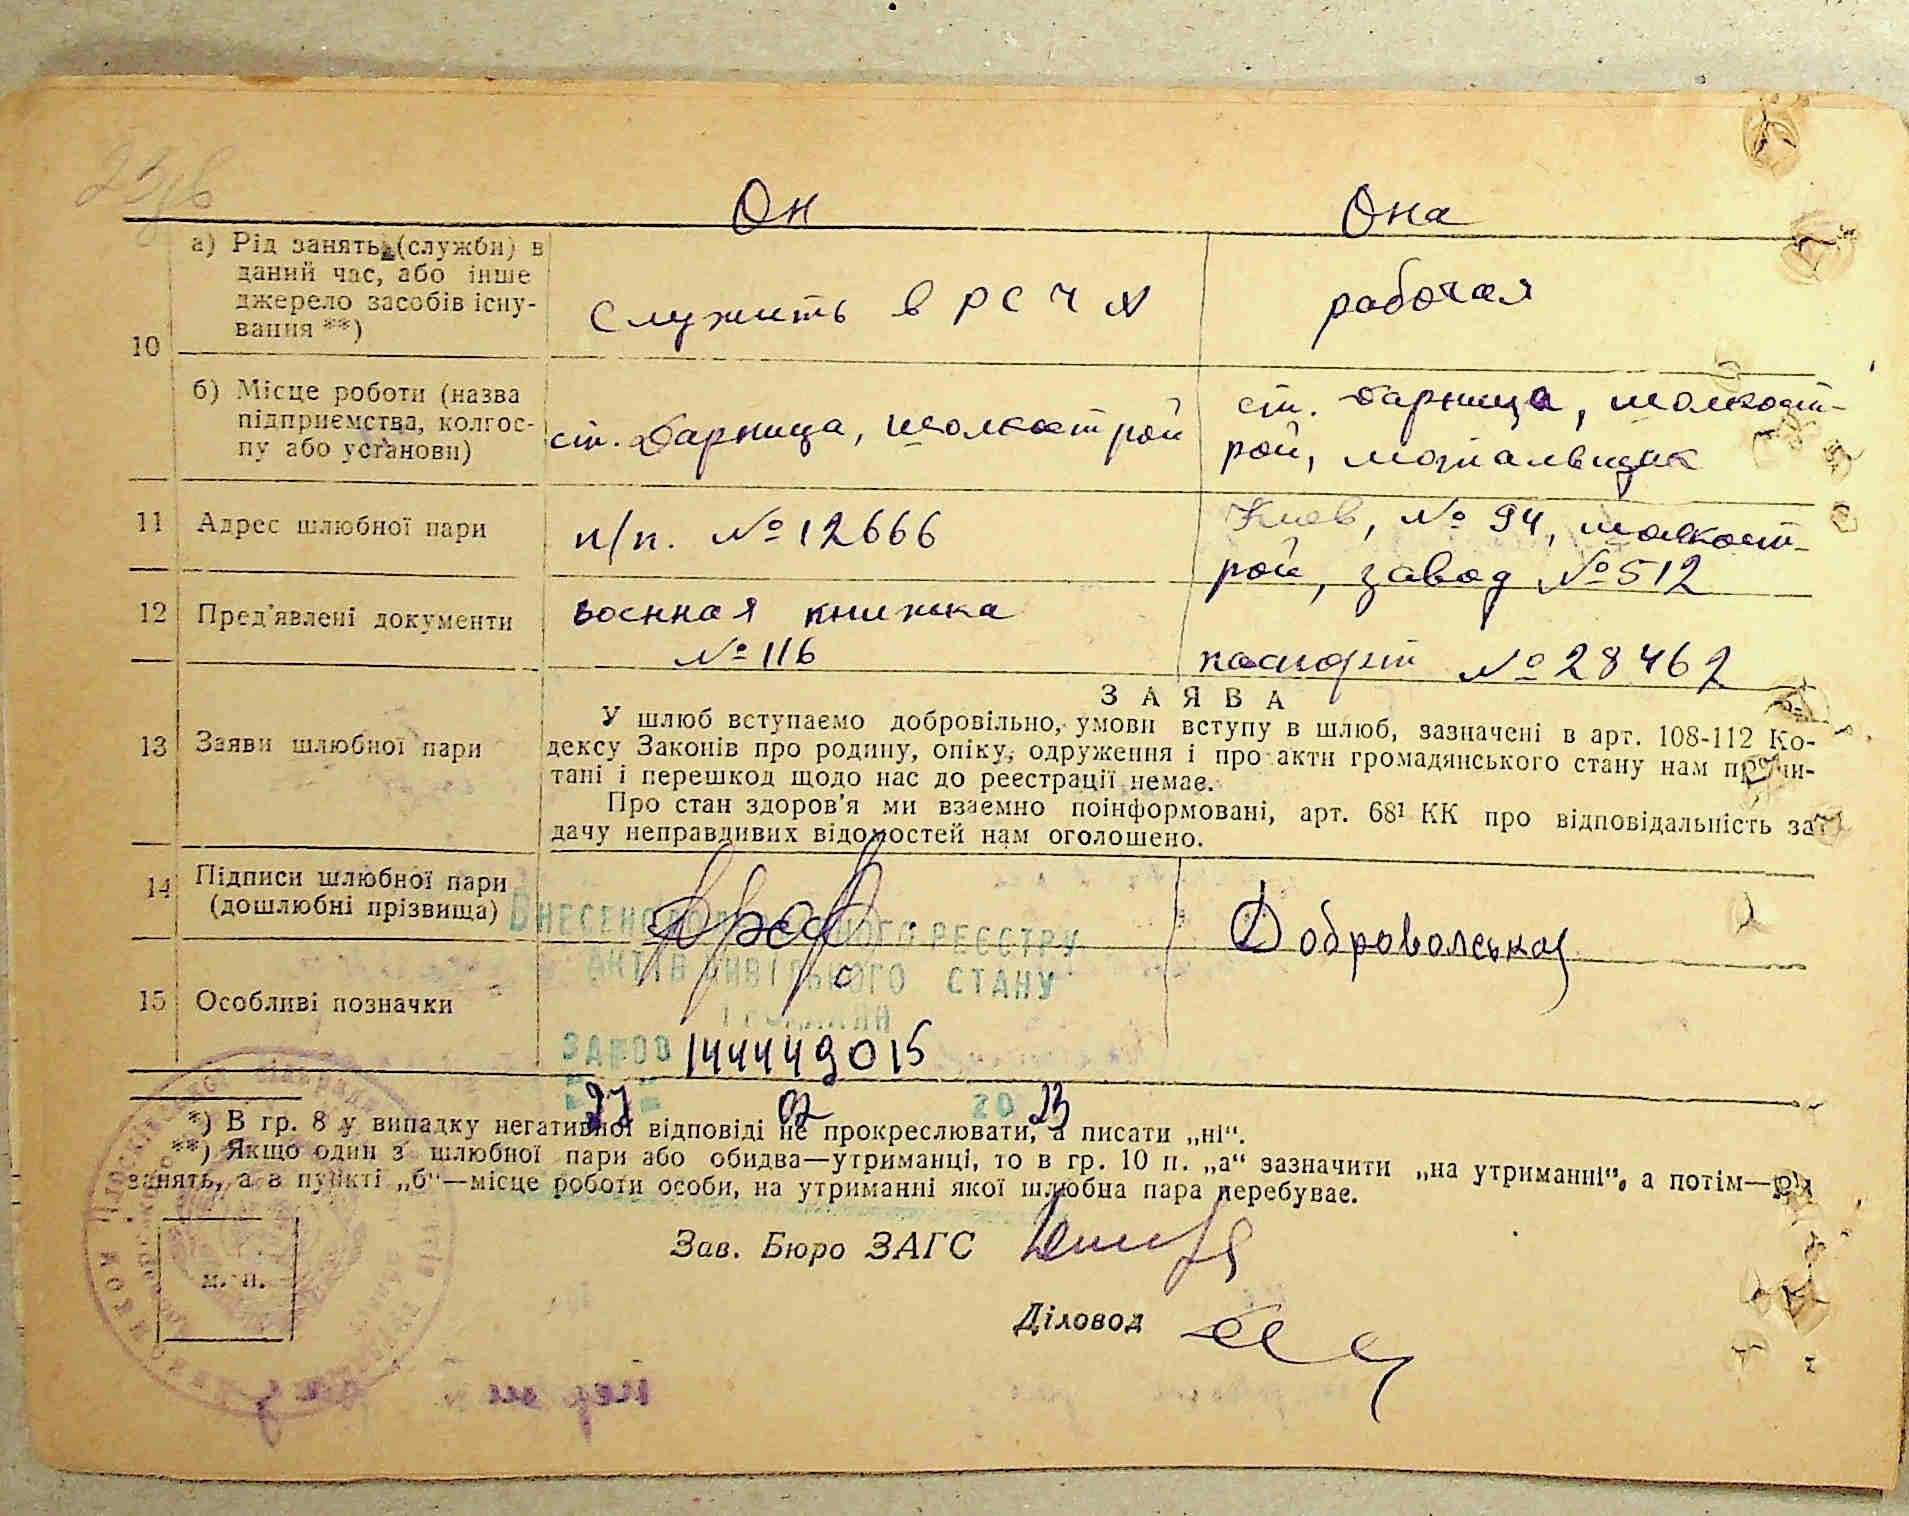 Он Она
10 а) Рід занять (служби) в
даний час, або інше
джерело засобів існу-
вання **)
Служить в Р С Ч А
рабочая
б) Місце роботи (назва
підприємства, колгос-
пу або установи)
ст. Дарница, шолкострой
ст. Дарница, шолкост-
рой, мотальщик
11 Адрес шлюбної пари
п/п. № 12666
Киев, № 94, шолкост-
рой, завод № 512
12 Пред'явлені документи
военная книжка
№ 116
паспорт № 28462
13 Заяви шлюбної пари
ЗАЯВА
У шлюб вступаємо добровільно, умови вступу в шлюб, зазначені в арт. 108-112 Ко-
дексу Законів про родину, опіку, одруження і про акти громадянського стану нам прочи-
тані і перешкод щодо нас до реєстрації немає.
Про стан здоров'я ми взаємно поінформовані, арт. 68¹ КК про відповідальність за
дачу неправдивих відомостей нам оголошено.
14 Підписи шлюбної пари
(дошлюбні прізвища)
Добровольська
ВНЕСЕНО ДО РЕЄСТРУ
АКТІВ ЦИВІЛЬНОГО СТАНУ
ГРОМАДЯН
15 Особливі позначки
144449015
27 02 20 23
*) В гр. 8 у випадку негативної відповіді не прокреслювати, а писати „ні“.
**) Якщо один з шлюбної пари або обидва—утриманці, то в гр. 10 п. „а“ зазначити „на утриманні“, а потім—рід
занять, а в пункті „б“—місце роботи особи, на утриманні якої шлюбна пара перебуває.
Зав. Бюро ЗАГС
м. п.
Діловод